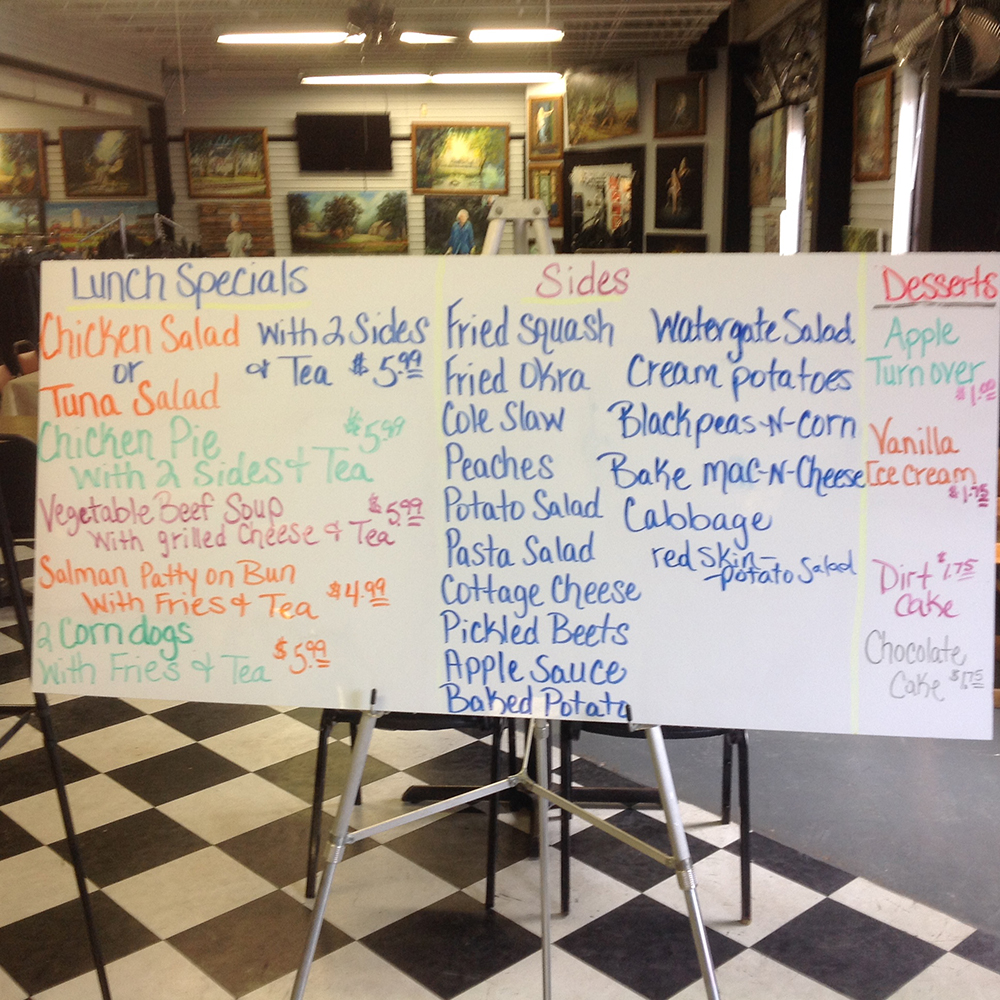 Lunch Specials
Chicken Salad with 2 Sides
or & Tea $5.99
Tuna Salad
Chicken Pie $5.99
with 2 Sides & Tea
Vegetable Beef Soup $5.99
with grilled Cheese & Tea
Salman Patty on Bun
with Fries & Tea $4.99
2 Corn dogs
with Fries & Tea $5.99
Sides
Fried Squash
Fried Okra
Cole Slaw
Peaches
Potato Salad
Pasta Salad
Cottage Cheese
Pickled Beets
Apple Sauce
Baked Potato
Watergate Salad
Cream potatoes
Blackpeas-N-corn
Bake mac-N-Cheese
Cabbage
red skin-
potato Salad
Desserts
Apple
Turnover
$1.00
Vanilla
Ice cream
$1.75
Dirt $1.75
Cake
Chocolate
Cake $1.75